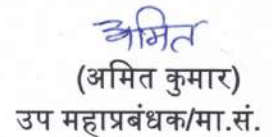 अमित
(अमित कुमार)
उप महाप्रबंधक/मा.सं.